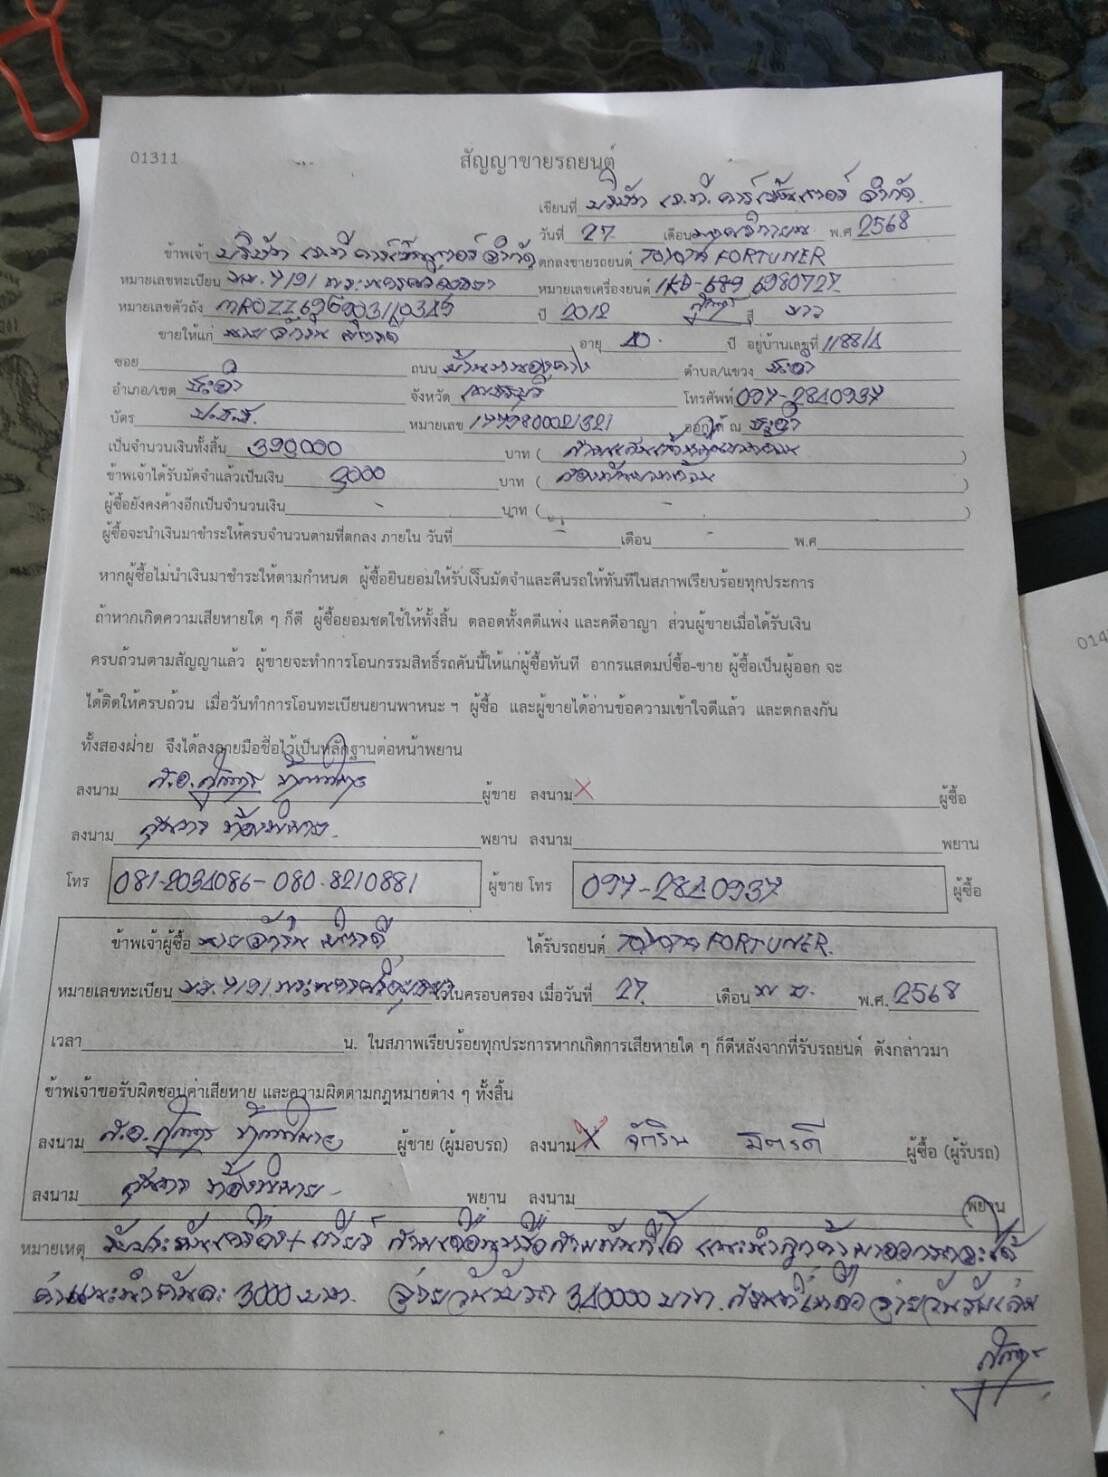 01311
สัญญาขายรถยนต์
เขียนที่ บริษัท เอ.ที. คาร์เซ็นเตอร์ จำกัด
วันที่ 27 เดือน พฤศจิกายน พ.ศ 2568
ข้าพเจ้า บริษัท เอ.ที คาร์เซ็นเตอร์ จำกัด ตกลงขายรถยนต์ TOYOTA FORTUNER
หมายเลขทะเบียน 7191 หมายเลขเครื่องยนต์ 1KD-
หมายเลขตัวถัง ปี 2012 สี ขาว
ขายให้แก่ นาย จักริน มิตรดี อายุ 40 ปี อยู่บ้านเลขที่ 1188/4
ซอย ถนน ตำบล/แขวง ชะอำ
อำเภอ/เขต ชะอำ จังหวัด เพชรบุรี โทรศัพท์ 097-2840937
บัตร ป.ช.ช. หมายเลข ออกให้ ณ ชะอำ
เป็นจำนวนเงินทั้งสิ้น 390000 บาท ( สามแสนเก้าหมื่นบาทถ้วน )
ข้าพเจ้าได้รับมัดจำแล้วเป็นเงิน 2000 บาท ( สองพันบาทถ้วน )
ผู้ซื้อยังคงค้างอีกเป็นจำนวนเงิน - บาท ( - )
ผู้ซื้อจะนำเงินมาชำระให้ครบจำนวนตามที่ตกลง ภายใน วันที่ เดือน พ.ศ
หากผู้ซื้อไม่นำเงินมาชำระให้ตามกำหนด ผู้ซื้อยินยอมให้รับเงินมัดจำและคืนรถให้ทันทีในสภาพเรียบร้อยทุกประการ
ถ้าหากเกิดความเสียหายใด ๆ ก็ดี ผู้ซื้อยอมชดใช้ให้ทั้งสิ้น ตลอดทั้งคดีแพ่ง และคดีอาญา ส่วนผู้ขายเมื่อได้รับเงิน
ครบถ้วนตามสัญญาแล้ว ผู้ขายจะทำการโอนกรรมสิทธิ์รถคันนี้ให้แก่ผู้ซื้อทันที อากรแสตมป์ซื้อ-ขาย ผู้ซื้อเป็นผู้ออก จะ
ได้ติดให้ครบถ้วน เมื่อวันทำการโอนทะเบียนยานพาหนะ ฯ ผู้ซื้อ และผู้ขายได้อ่านข้อความเข้าใจดีแล้ว และตกลงกัน
ทั้งสองฝ่าย จึงได้ลงลายมือชื่อไว้เป็นหลักฐานต่อหน้าพยาน
ลงนาม ผู้ขาย ลงนาม X ผู้ซื้อ
ลงนาม พยาน ลงนาม พยาน
โทร 081-2034086-080-8210881 ผู้ขาย โทร 097-2840937 ผู้ซื้อ
ข้าพเจ้าผู้ซื้อ นาย จักริน มิตรดี ได้รับรถยนต์ TOYOTA FORTUNER
หมายเลขทะเบียน 7191 ไว้ในครอบครอง เมื่อวันที่ 27 เดือน พ.ย. พ.ศ. 2568
เวลา น. ในสภาพเรียบร้อยทุกประการหากเกิดการเสียหายใด ๆ ก็ดีหลังจากที่รับรถยนต์ ดังกล่าวมา
ข้าพเจ้าขอรับผิดชอบค่าเสียหาย และความผิดตามกฎหมายต่าง ๆ ทั้งสิ้น
ลงนาม ผู้ขาย (ผู้มอบรถ) ลงนาม X จักริน มิตรดี ผู้ซื้อ (ผู้รับรถ)
ลงนาม พยาน ลงนาม พยาน
หมายเหตุ รับประกันเครื่อง+เกียร์ สามเดือนหรือสามพันกิโล แนะนำลูกค้ามาออกรถจะได้
ค่าแนะนำคันละ 3000 บาท. จ่ายวันรับรถ 340000 บาท. ส่วนที่เหลือจ่ายวันรับเล่ม